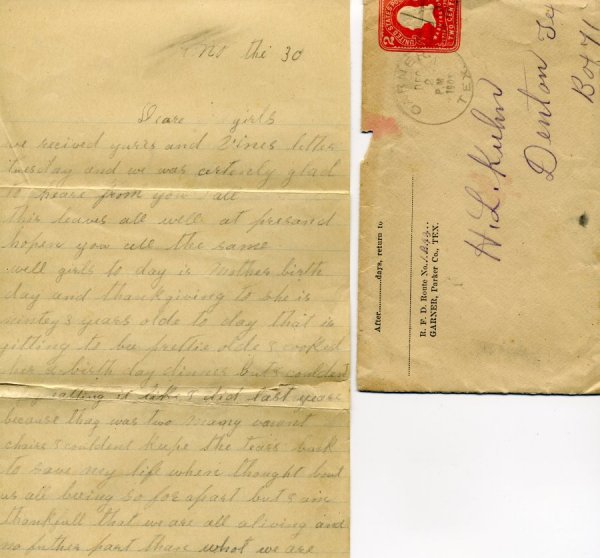 Nov the 30
Deare girls
we recived yours and Vines letter
tuesday and we was certenly glad
to heare from you all
this leaves all well at presand
hopen you all the same
well girls to day is mother birth
day and thankgiving to she is
ninty 3 years olde to day that is
gitting to be prettie olde I cooked
her a birth day dinner but I couldent
eating it like I did last years
because thay was two many vacent
chairs I couldent keepe the tears back
to save my life when thought bout
us all being so for apart but I am
thankfull that we are all aliving and
no futher part than what we are
UNITED STATES
2
TWO CENTS
DEC
2
P M
TEX.
H. L. Kuhn
Denton Tex
Box 71
After............days, return to
R. F. D. Route No.
GARNER, Parker Co., TEX.